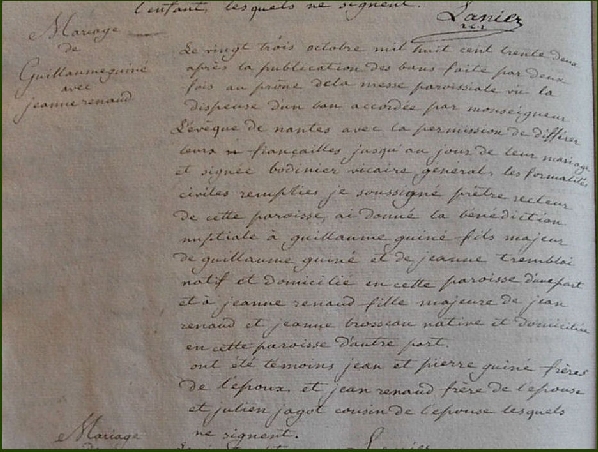 l'enfant, lesquels ne signent.
Lanier
Mariage
de
Guillaume guiné
avec
jeanne renaud
Le vingt trois octobre mil huit cent trente deux
après la publication des bans faite par deux
fois au prône de la messe paroissiale vu la
dispense d'un ban accordée par monseigneur
L'évêque de nantes avec la permission de différer
leurs fiançailles jusqu'au jour de leur mariage
et signée bodinier vicaire général, les formalités
civiles remplies je soussigné prêtre recteur
de cette paroisse, ai donné la bénédiction
nuptiale à guillaume guiné fils majeur
de guillaume guiné et de jeanne tremblai
natif et domicilié en cette paroisse d'une part
et à jeanne renaud fille majeure de jean
renaud et jeanne brosseau native et domiciliée
en cette paroisse d'autre part.
ont été témoins jean et pierre guiné frères
de l'époux et jean renaud frère de l'épouse
et julien jagot cousin de l'épouse lesquels
ne signent.
Mariage